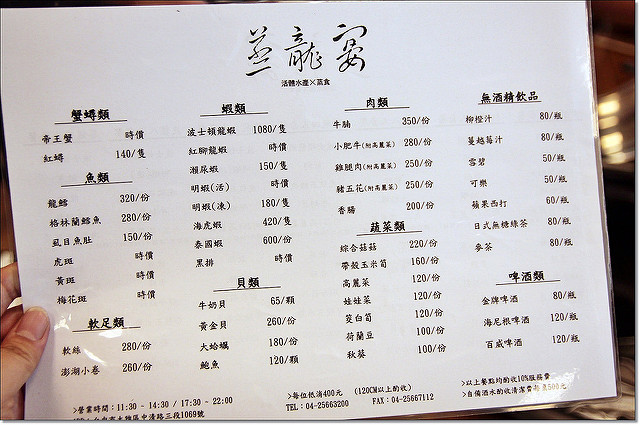 蒸龍宴
活體水產×蒸食
蟹蟳類
帝王蟹 時價
紅蟳 140/隻
魚類
龍鱈 320/份
格林蘭鱈魚 280/份
虱目魚肚 150/份
虎斑 時價
黃斑 時價
梅花斑 時價
軟足類
軟絲 280/份
澎湖小卷 260/份
蝦類
波士頓龍蝦 1080/隻
紅腳龍蝦 時價
瀨尿蝦 150/隻
明蝦(活) 時價
明蝦(凍) 180/隻
海虎蝦 420/隻
泰國蝦 600/份
黑排 時價
貝類
牛奶貝 65/顆
黃金貝 260/份
大蛤蠣 180/份
鮑魚 120/顆
肉類
牛腩 350/份
小肥牛(附高麗菜) 280/份
雞腿肉(附高麗菜) 250/份
豬五花(附高麗菜) 250/份
香腸 200/份
蔬菜類
綜合菇菇 220/份
帶殼玉米筍 160/份
高麗菜 120/份
娃娃菜 120/份
筊白筍 120/份
荷蘭豆 100/份
秋葵 100/份
無酒精飲品
柳橙汁 80/瓶
蔓越莓汁 80/瓶
雪碧 50/瓶
可樂 50/瓶
蘋果西打 60/瓶
日式無糖綠茶 80/瓶
麥茶 80/瓶
啤酒類
金牌啤酒 80/瓶
海尼根啤酒 120/瓶
百威啤酒 120/瓶
>營業時間：11:30 - 14:30 / 17:30 - 22:00
台中市大雅區中清路三段1069號
>每位低消400元 (120CM以上酌收)
TEL：04-25663200 FAX：04-25667112
>以上餐點均酌收10%服務費
>自備酒水酌收清潔費每瓶500元